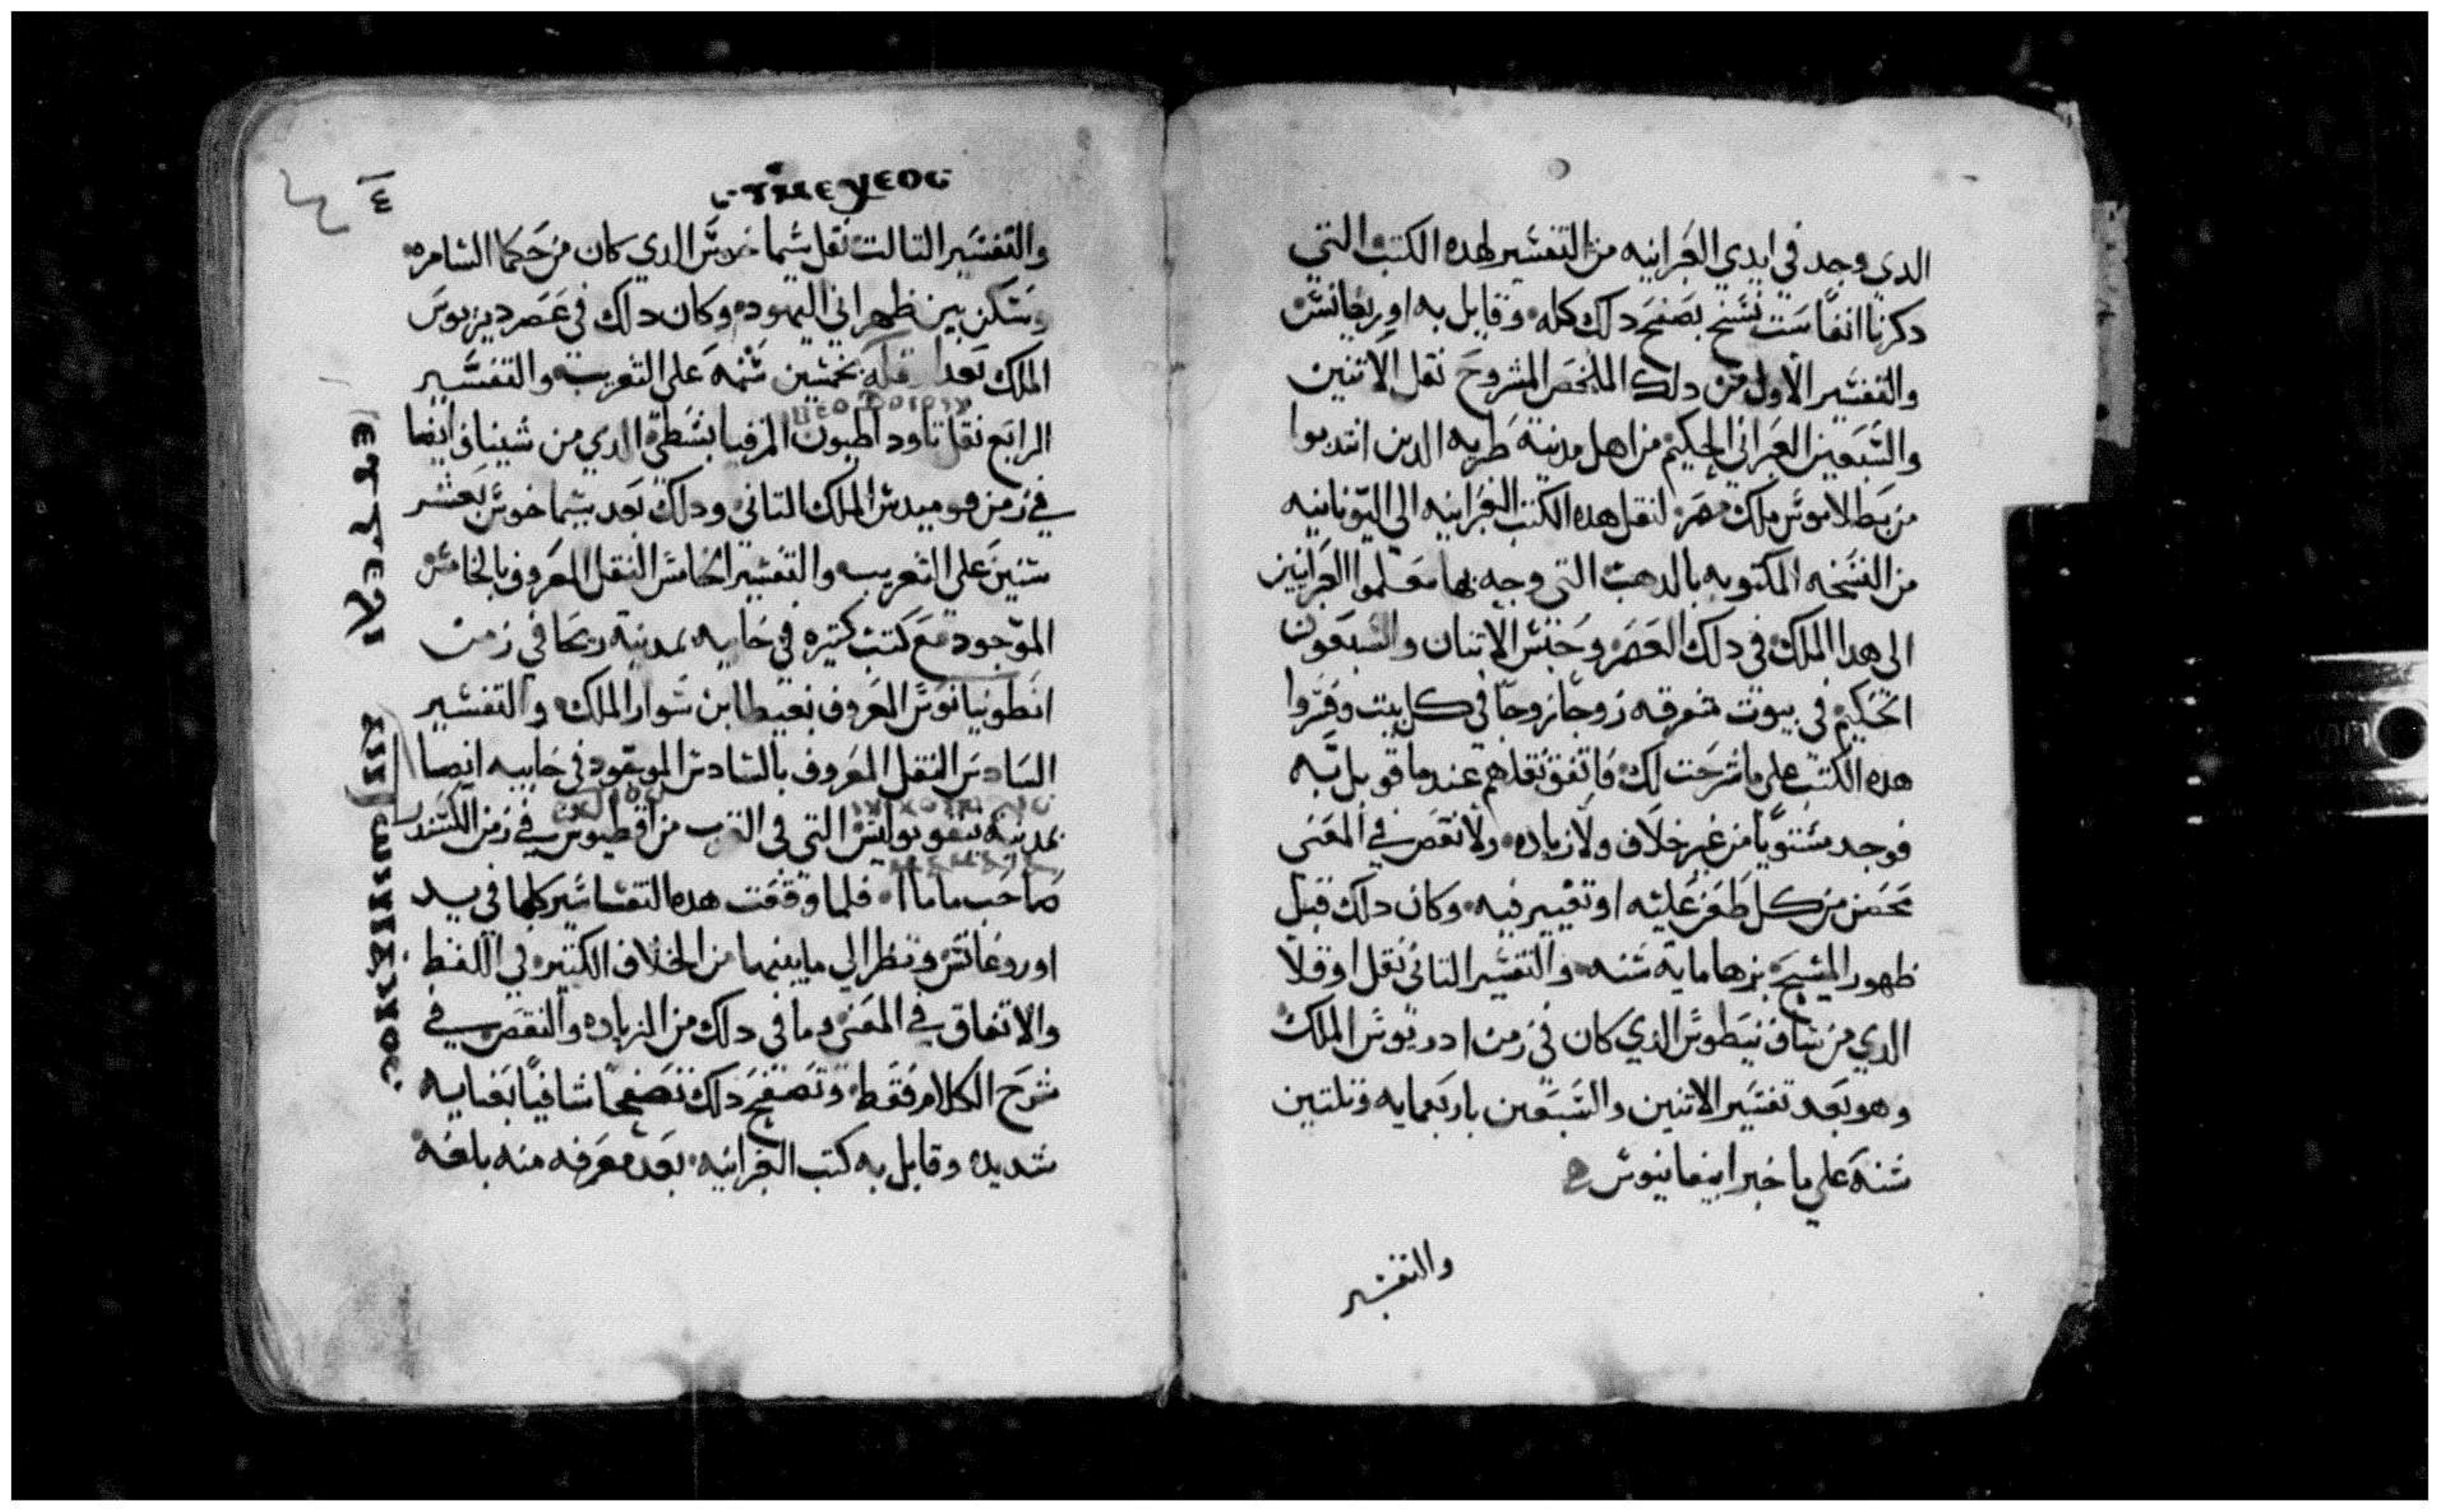 الدي وجد في ايدي العبرانيه من التفسير لهده الكتب التي
دكرنا انفا ست نسخ بصفح دلك كله وقابل به اوريغانس
والتفسير الاول من دلك الملخص المشروح نقل الاثنين
والسبعين العبراني الحكيم من اهل مدينة طبريه الدين انتدبوا
من بطلاموس ملك مصر لنقل هده الكتب العبرانيه الي اليونانيه
من النسخه المكتوبه بالدهب التي وجه بها معلموا العبرانيين
الي هدا الملك في دلك العصر وحبس الاتنان والسبعون
الحكيم في بيوت متفرقه زوجا زوجا في كل بيت وفسروا
هده الكتب علي ما شرحت لك فاتفق نقلهم عندما قوبل به
فوجد مستويا من غير خلاف ولا زياده ولا نقص في المعني
محصن من كل طعن عليه او تغيير فيه وكان دلك قبل
ظهور المسيح بزها ماية سنه والتفسير التاني نقل اوقلا
الدي من ساف نيطوس الدي كان في زمن ادريوس الملك
وهو بعد تفسير الاتنين والسبعين باربعمايه وتلتين
سنة علي ما خبر ابيفانيوس
والتفسير
والتفسير التالت نقل سيماخوس الدي كان من حكما السامره
وسكن بين ظهراني اليهود وكان دلك في عصر ديزيوس
الملك بعد اقله بخمسين سنه علي التعريب والتفسير
الرابع نقل تاوداطيون الدي من شينافي ايضا
في زمن قوميدس الملك التاني ودلك بعد سيماخوس بعشر
سنين علي التعريب والتفسير الخامس النقل المعروف بالخامس
الموجود مع كتب كتيره في خابيه بمدينة ريحا في زمن
انطونيانوس المعروف بغيطا بن سوار الملك والتفسير
السادس النقل المعروف بالسادس الموجود في خابيه ايضا
بمدينة نيقوبوليس التي في القرب من اقطيوس في زمن الكسندر
صاحب ماما فلما وقفت هده التفاسير كلها في يد
اوروغانس ونظر الي ما بينهما من الخلاف الكتير في اللفظ
والاتفاق في المعني وما في دلك من الزياده والنقص في
شرح الكلام فقط وتصفح دلك تصفحا شافيا بعنايه
شديده وقابل به كتب العبرانيه بعد معرفه منه بلغة